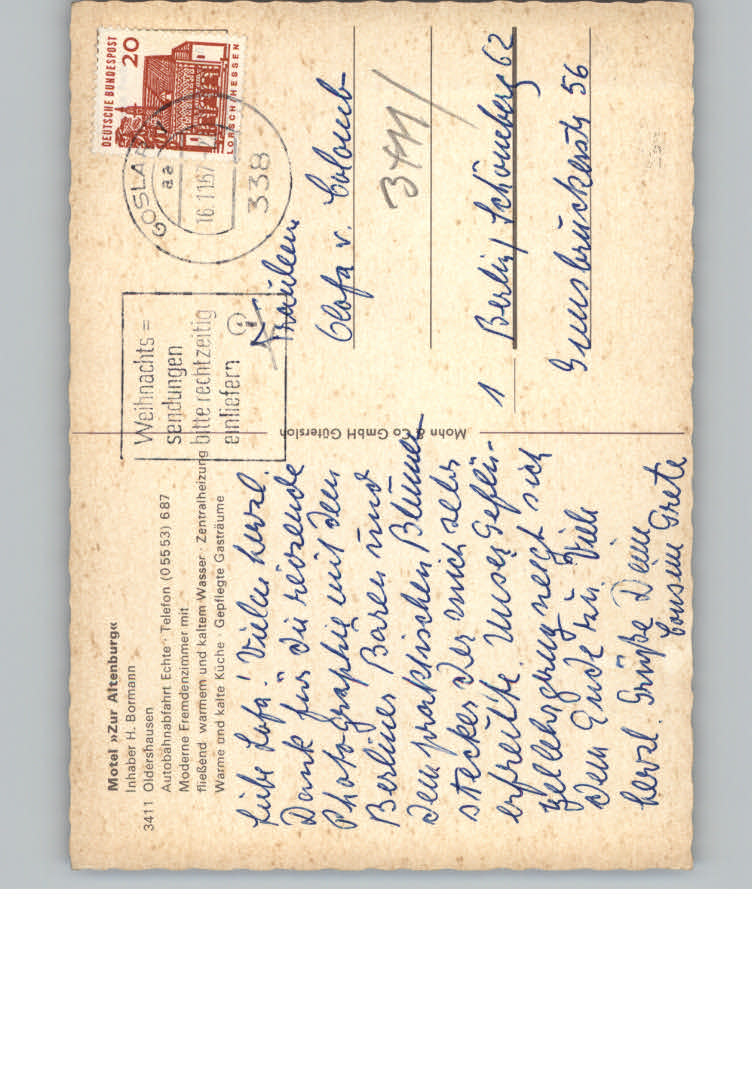 Motel »Zur Altenburg«
Inhaber H. Bormann
3411 Oldershausen
Autobahnabfahrt Echte · Telefon (05553) 687
Moderne Fremdenzimmer mit
fließend warmem und kaltem Wasser · Zentralheizung
Warme und kalte Küche · Gepflegte Gasträume
Liebe Lofa! Vielen herzl.
Dank für die reizende
Photographie mit dem
Berliner Bären und
dem praktischen Blumen-
stecker der mich sehr
erfreute. Unser Geflü-
gellehrgang neigt sich
dem Ende zu. Viele
herzl. Grüße Deine
Cousine Grete
Mohn & Co GmbH Gütersloh
DEUTSCHE BUNDESPOST
20
LORSCH/HESSEN
GOSLAR
aa
16.11.67
338
Weihnachts=
sendungen
bitte rechtzeitig
einliefern
Fräulein
Olofa v. Colomb
1 Berlin/Schöneberg 62
Innsbruckerstr 56